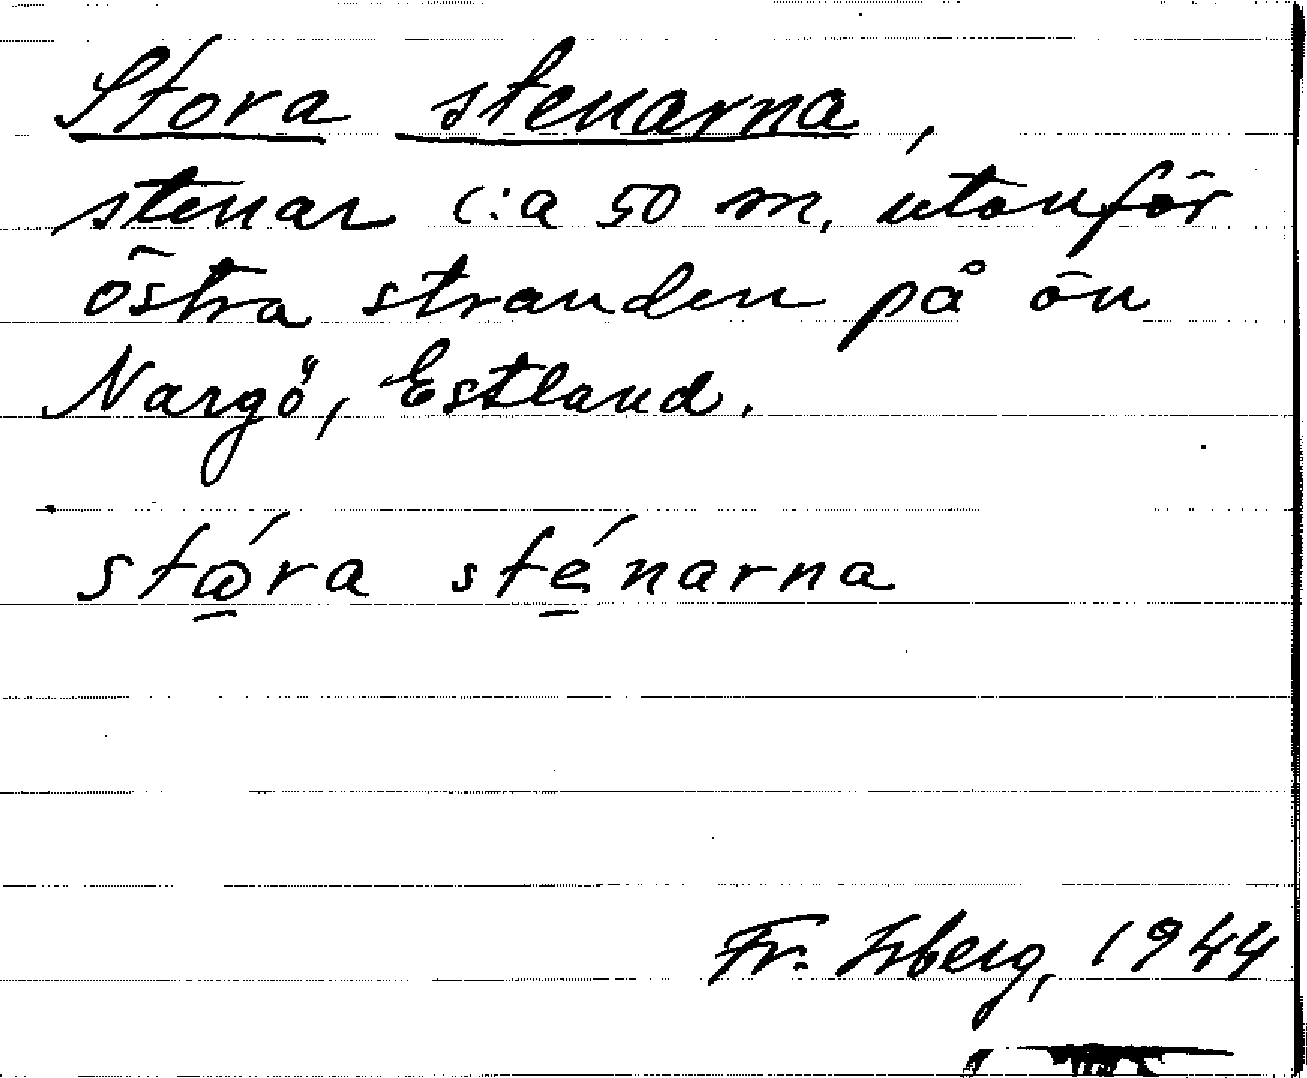 Stora stenarna,
stenar c:a 50 m. utanför
östra stranden på ön
Nargö, Estland.
stώ̱ra sté̱narna
Fr. Isberg, 1944